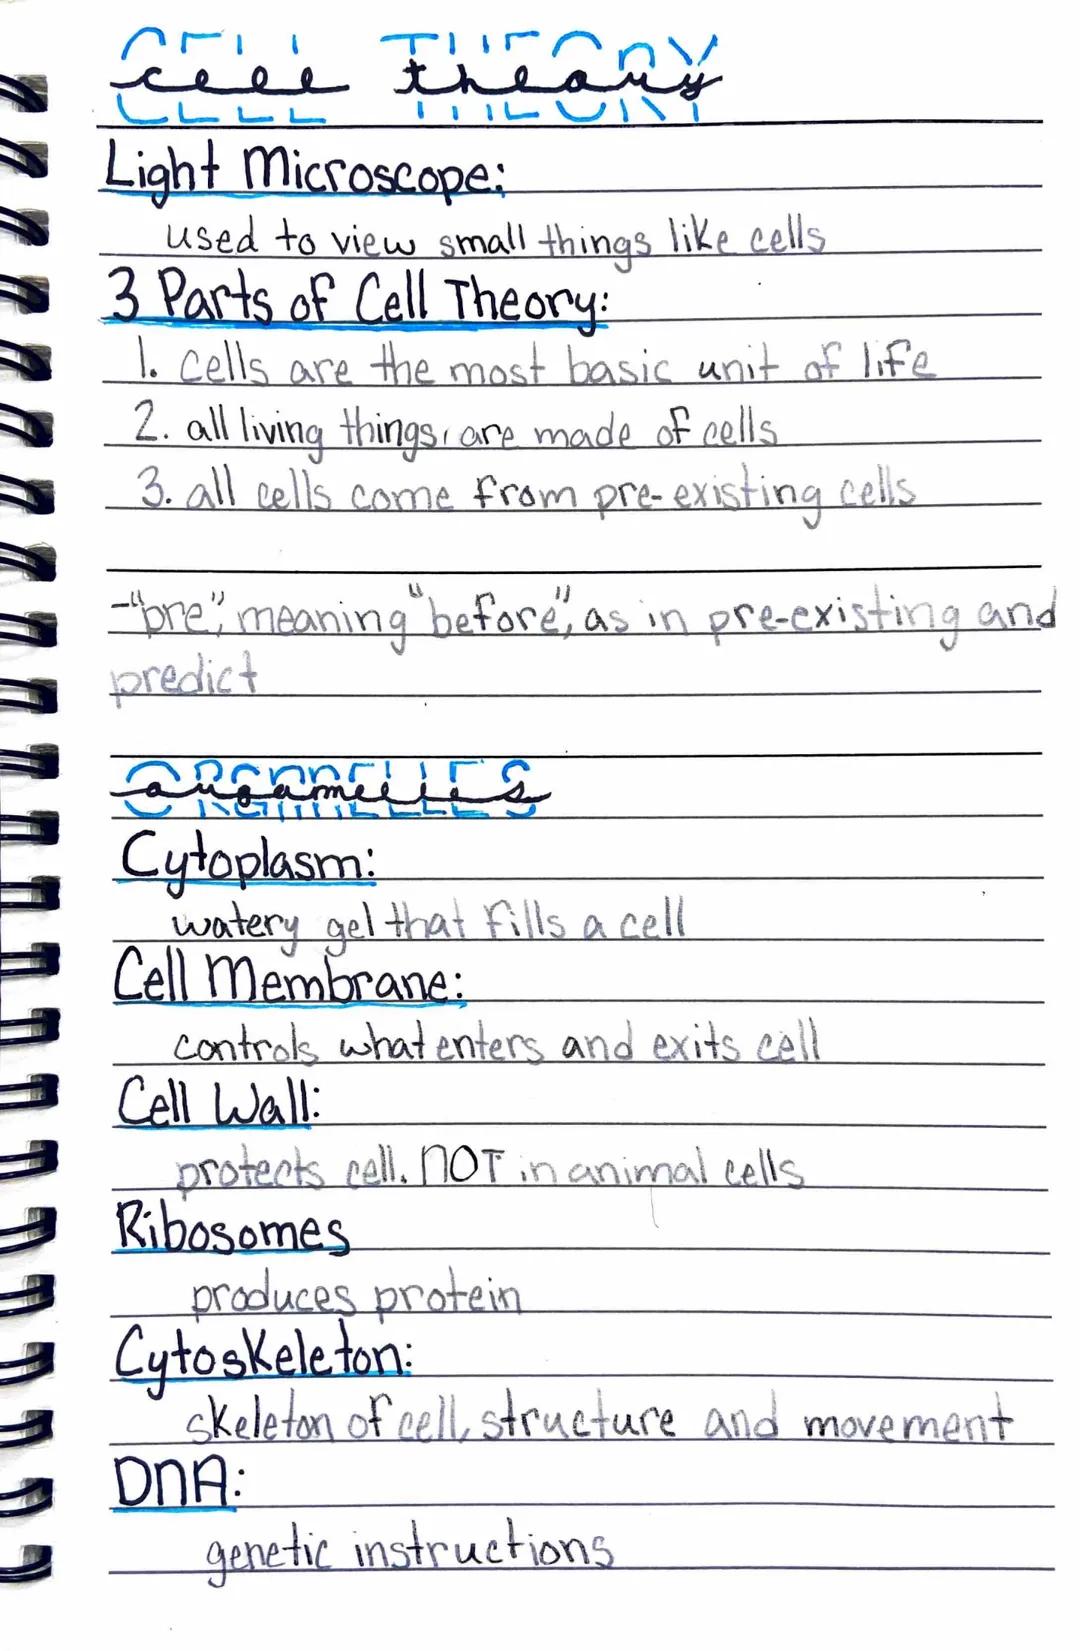 cell theory
Light Microscope:
used to view small things like cells
3 Parts of Cell Theory:
1. cells are the most basic unit of life
2. all living things, are made of cells
3. all cells come from pre-existing cells
-"pre", meaning "before", as in pre-existing and
predict
organelles
Cytoplasm:
watery gel that fills a cell
Cell Membrane:
controls what enters and exits cell
Cell Wall:
protects cell. NOT in animal cells
Ribosomes
produces protein
Cytoskeleton:
skeleton of cell, structure and movement
DNA:
genetic instructions